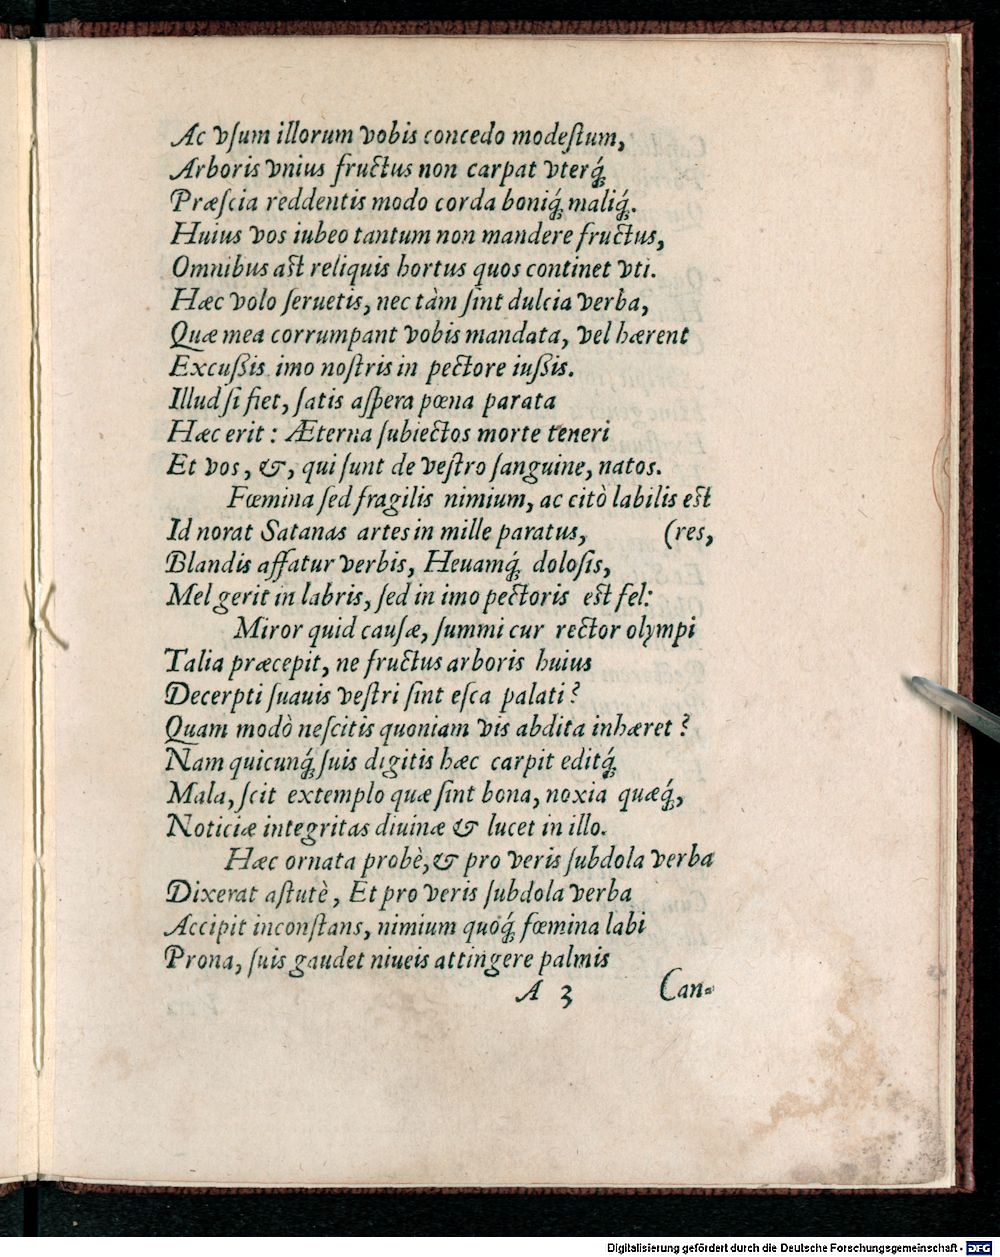 Ac vſum illorum vobis concedo modeſtum,
Arboris vnius fructus non carpat vterq́;
Præſcia reddentis modo corda boniq́; maliq́;.
Huius vos iubeo tantum non mandere fructus,
Omnibus aſt reliquis hortus quos continet vti.
Hæc volo ſeruetis, nec tàm ſint dulcia verba,
Quæ mea corrumpant vobis mandata, vel hærent
Excuſsis imo noſtris in pectore iuſsis.
Illud ſi fiet, ſatis aſpera pœna parata
Hæc erit: Æterna ſubiectos morte teneri
Et vos, &, qui ſunt de veſtro ſanguine, natos.
Fœmina ſed fragilis nimium, ac citò labilis eſt
Id norat Satanas artes in mille paratus, (res,
Blandis affatur verbis, Heuamq́; doloſis,
Mel gerit in labris, ſed in imo pectoris eſt fel:
Miror quid cauſæ, ſummi cur rector olympi
Talia præcepit, ne fructus arboris huius
Decerpti ſuauis veſtri ſint eſca palati?
Quam modò neſcitis quoniam vis abdita inhæret?
Nam quicunq́; ſuis digitis hæc carpit editq́;
Mala, ſcit extemplo quæ ſint bona, noxia quæq́;,
Noticiæ integritas diuinæ & lucet in illo.
Hæc ornata probè, & pro veris ſubdola verba
Dixerat aſtutè, Et pro veris ſubdola verba
Accipit inconſtans, nimium quoq́; fœmina labi
Prona, ſuis gaudet niueis attingere palmis
A 3 Can-
Digitalisierung gefördert durch die Deutsche Forschungsgemeinschaft - DFG